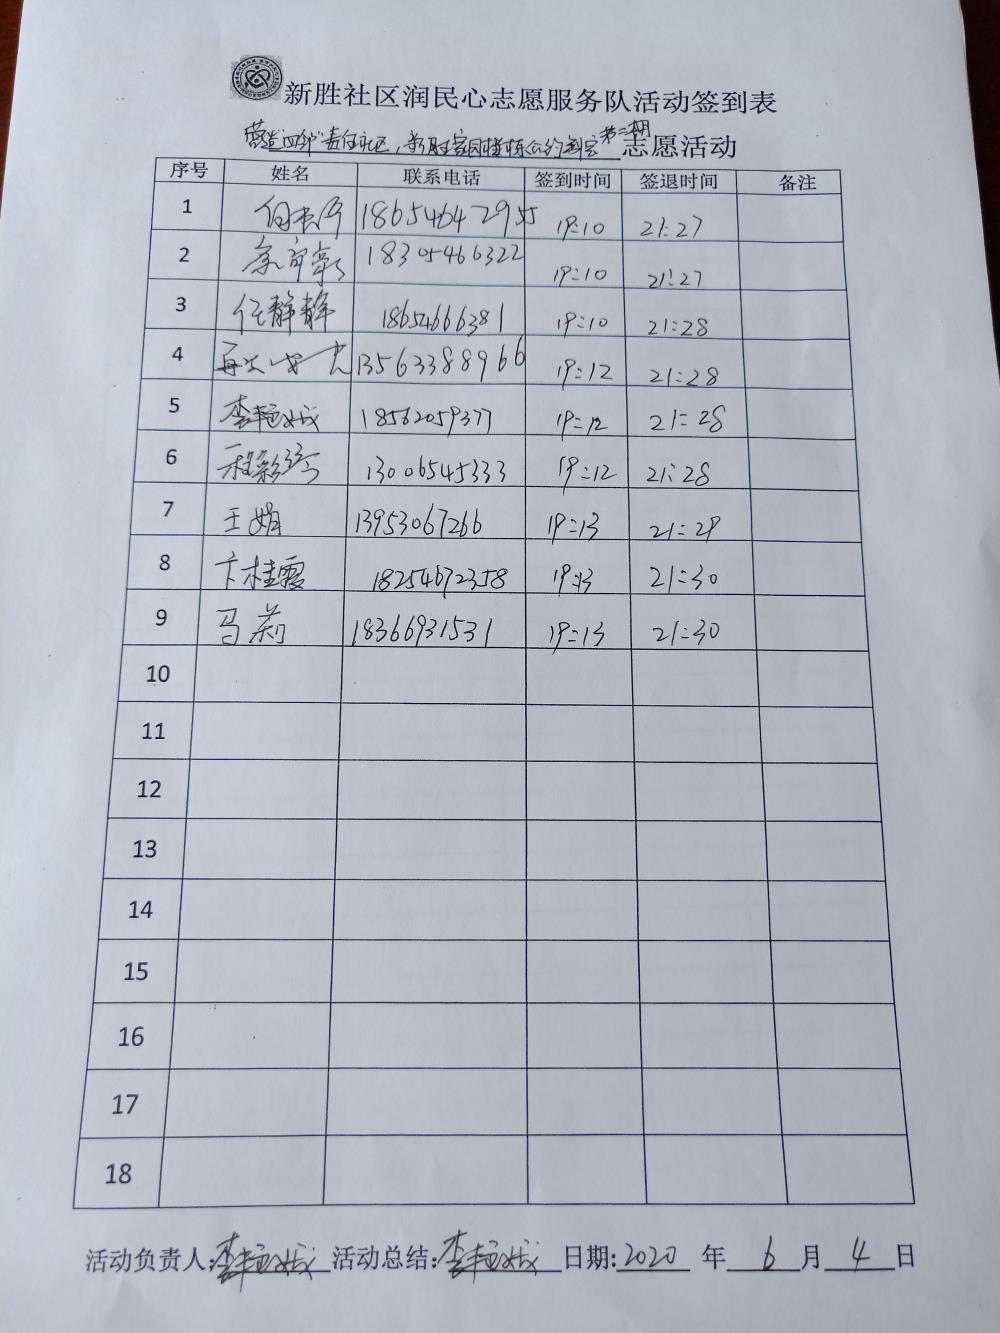 新胜社区润民心志愿服务队活动签到表
营造四邻责任社区，新胜家园楼栋公约制定 第二期 志愿活动
序号 姓名 联系电话 签到时间 签退时间 备注
1 18654647955 19:10 21:27
2 18305466322 19:10 21:27
3 任静静 18654666381 19:10 21:28
4 13563388966 19:12 21:28
5 李艳斌 18562059377 19:12 21:28
6 13006545333 19:12 21:28
7 王娟 13953067266 19:13 21:29
8 卞桂霞 18254672358 19:13 21:30
9 马莉 18366931531 19:13 21:30
10
11
12
13
14
15
16
17
18
活动负责人: 活动总结: 日期:2020 年 6 月 4 日